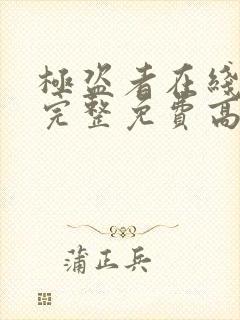 極盗者在綫
完整免費高
蒲正兵